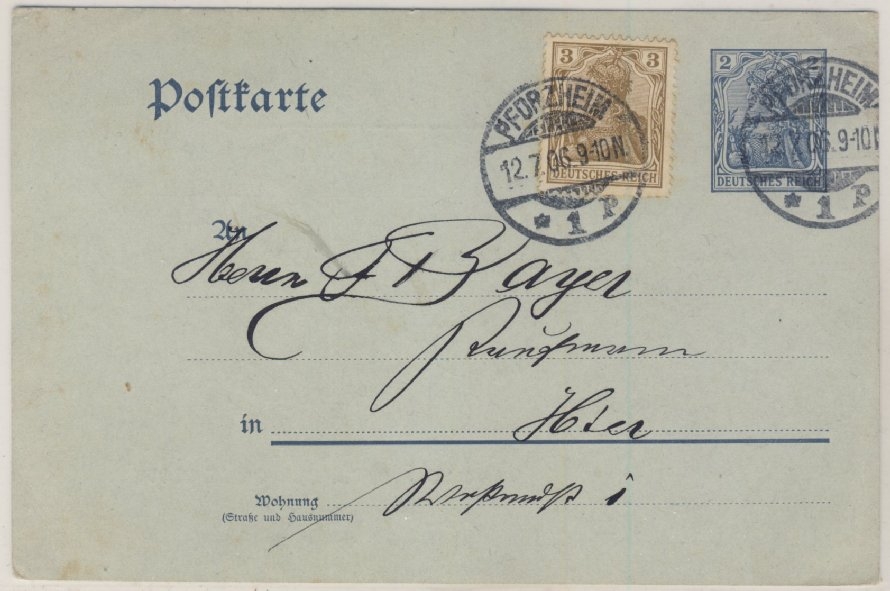 Postkarte
3 3
DEUTSCHES REICH
PFORZHEIM
12.7.06.9-10N.
* 1 P
2 2
DEUTSCHES REICH
PFORZHEIM
12.7.06.9-10N
* 1 P
An
Herrn F Bayer
Kaufmann
in Hier
Wohnung
(Straße und Hausnummer)